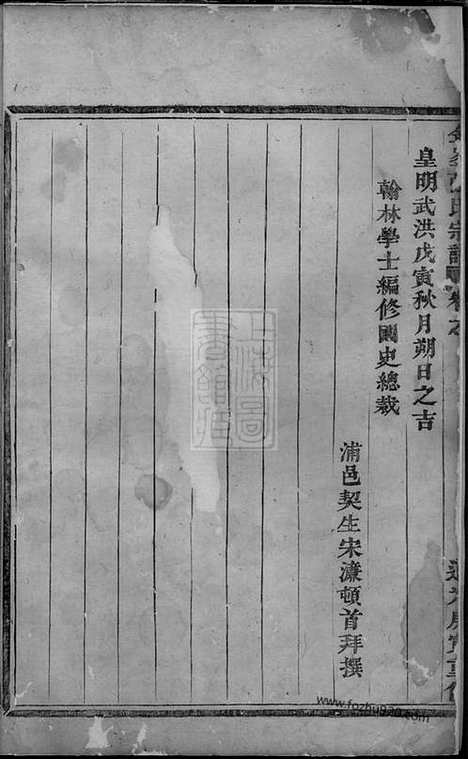 氏宗譜 卷之
皇明武洪戊寅秋月朔日之吉
翰林學士編修國史總裁
浦邑契生宋濂頓首拜撰
上海圖
書館藏
www.fozhu920.com